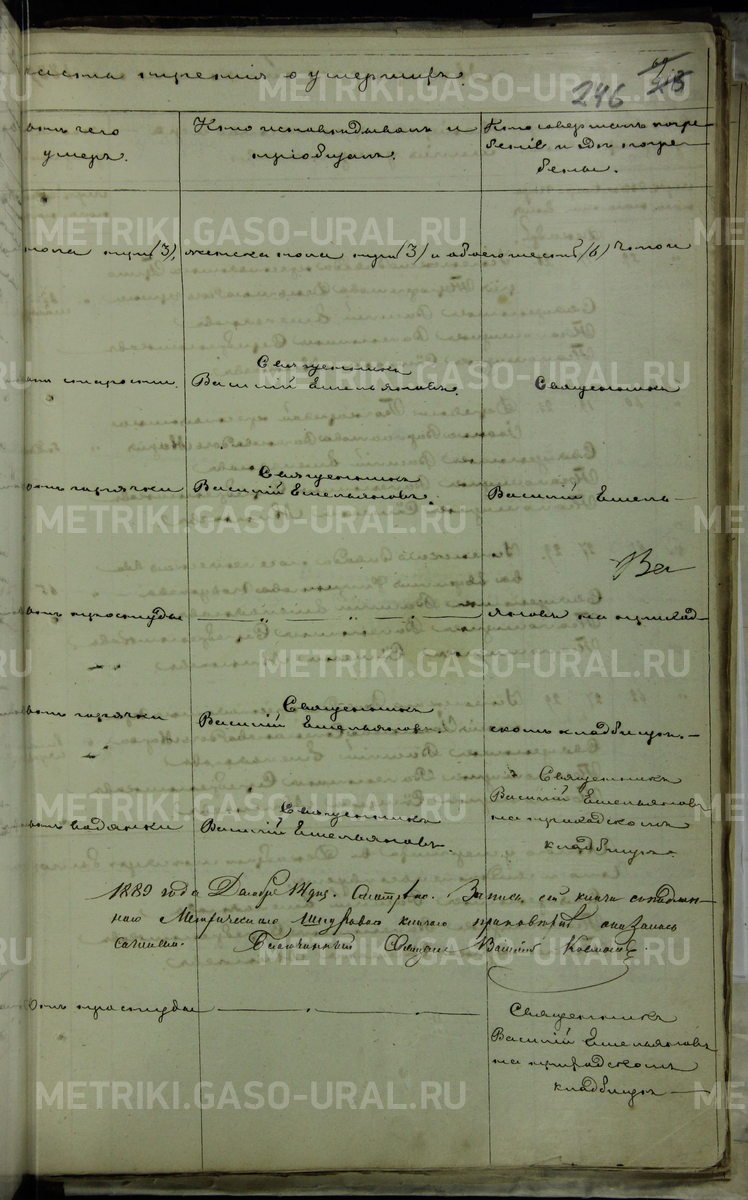 часть третія о умершихъ.
246
отъ чего
умеръ.
Кто исповѣдывалъ и
пріобщалъ.
Кто совершалъ погре-
беніе и гдѣ погре-
бены.
пола три (3), женска пола три (3) и обоего шесть (6)
отъ старости.
Священникъ
Василій Емельяновъ.
Священникъ
отъ горячки
Священникъ
Василій Емельяновъ.
Василій Емель—
Ва
отъ простуды
— „ — „ —
яновъ на приход-
„
отъ горячки
„
Священникъ
Василій Емельяновъ.
скомъ кладбищѣ.—
отъ водянки
Священникъ
Василій Емельяновъ.
Священникъ
Василій Емельяновъ
на приходскомъ
кладбищѣ.
1889 года Декабря 14 дня. Смотрѣно. Запись сей книги
Метрическаго книгою оказалась
Благочинный Священ. Василій
отъ простуды
— „ —
Священникъ
Василій Емельяновъ
на приходскомъ
кладбищѣ —
METRIKI.GASO-URAL.RU